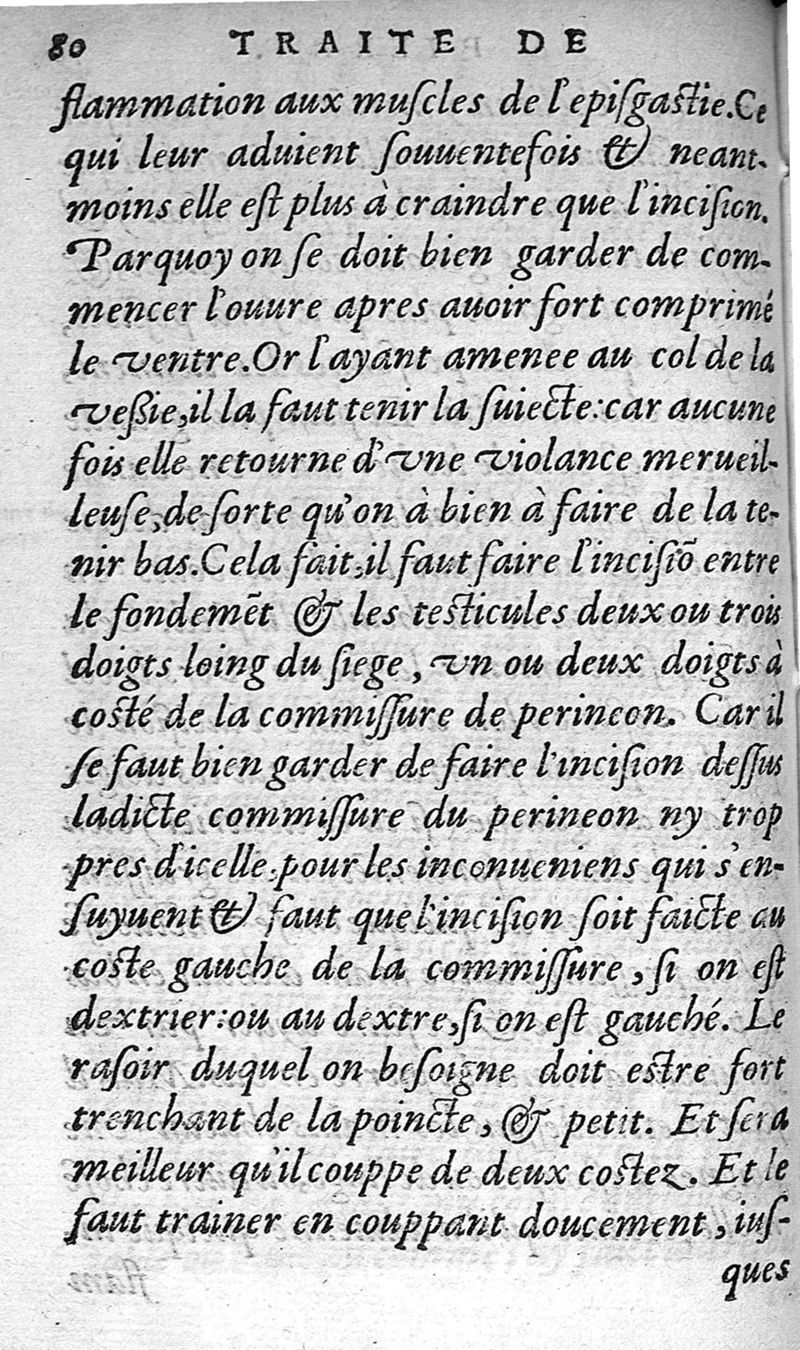 80 TRAITE DE
flammation aux muſcles de l'epiſgaſtie. Ce
qui leur aduient ſouuentefois & neant-
moins elle eſt plus à craindre que l'inciſion.
Parquoy on ſe doit bien garder de com-
mencer l'ouure apres auoir fort comprimé
le ventre. Or l'ayant amenee au col de la
veßie, il la faut tenir la ſuiecte: car aucune
fois elle retourne d'vne violance merueil-
leuſe, de ſorte qu'on à bien à faire de la te-
nir bas. Cela fait, il faut faire l'inciſiõ entre
le fondemẽt & les teſticules deux ou trois
doigts loing du ſiege, vn ou deux doigts à
coſté de la commiſſure de perineon. Car il
ſe faut bien garder de faire l'inciſion deſſus
ladicte commiſſure du perineon ny trop
pres d'icelle, pour les inconueniens qui s'en-
ſuyuent & faut que l'inciſion ſoit faicte au
coſte gauche de la commiſſure, ſi on eſt
dextrier: ou au dextre, ſi on eſt gauché. Le
raſoir duquel on beſoigne doit eſtre fort
trenchant de la poincte, & petit. Et ſera
meilleur qu'il couppe de deux coſtez. Et le
faut trainer en couppant doucement, iuſ-
ques